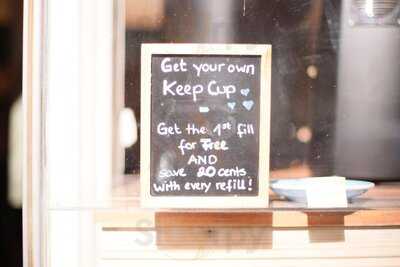 Get your own
Keep Cup
Get the 1st fill
for Free
AND
save 20 cents
with every refill!